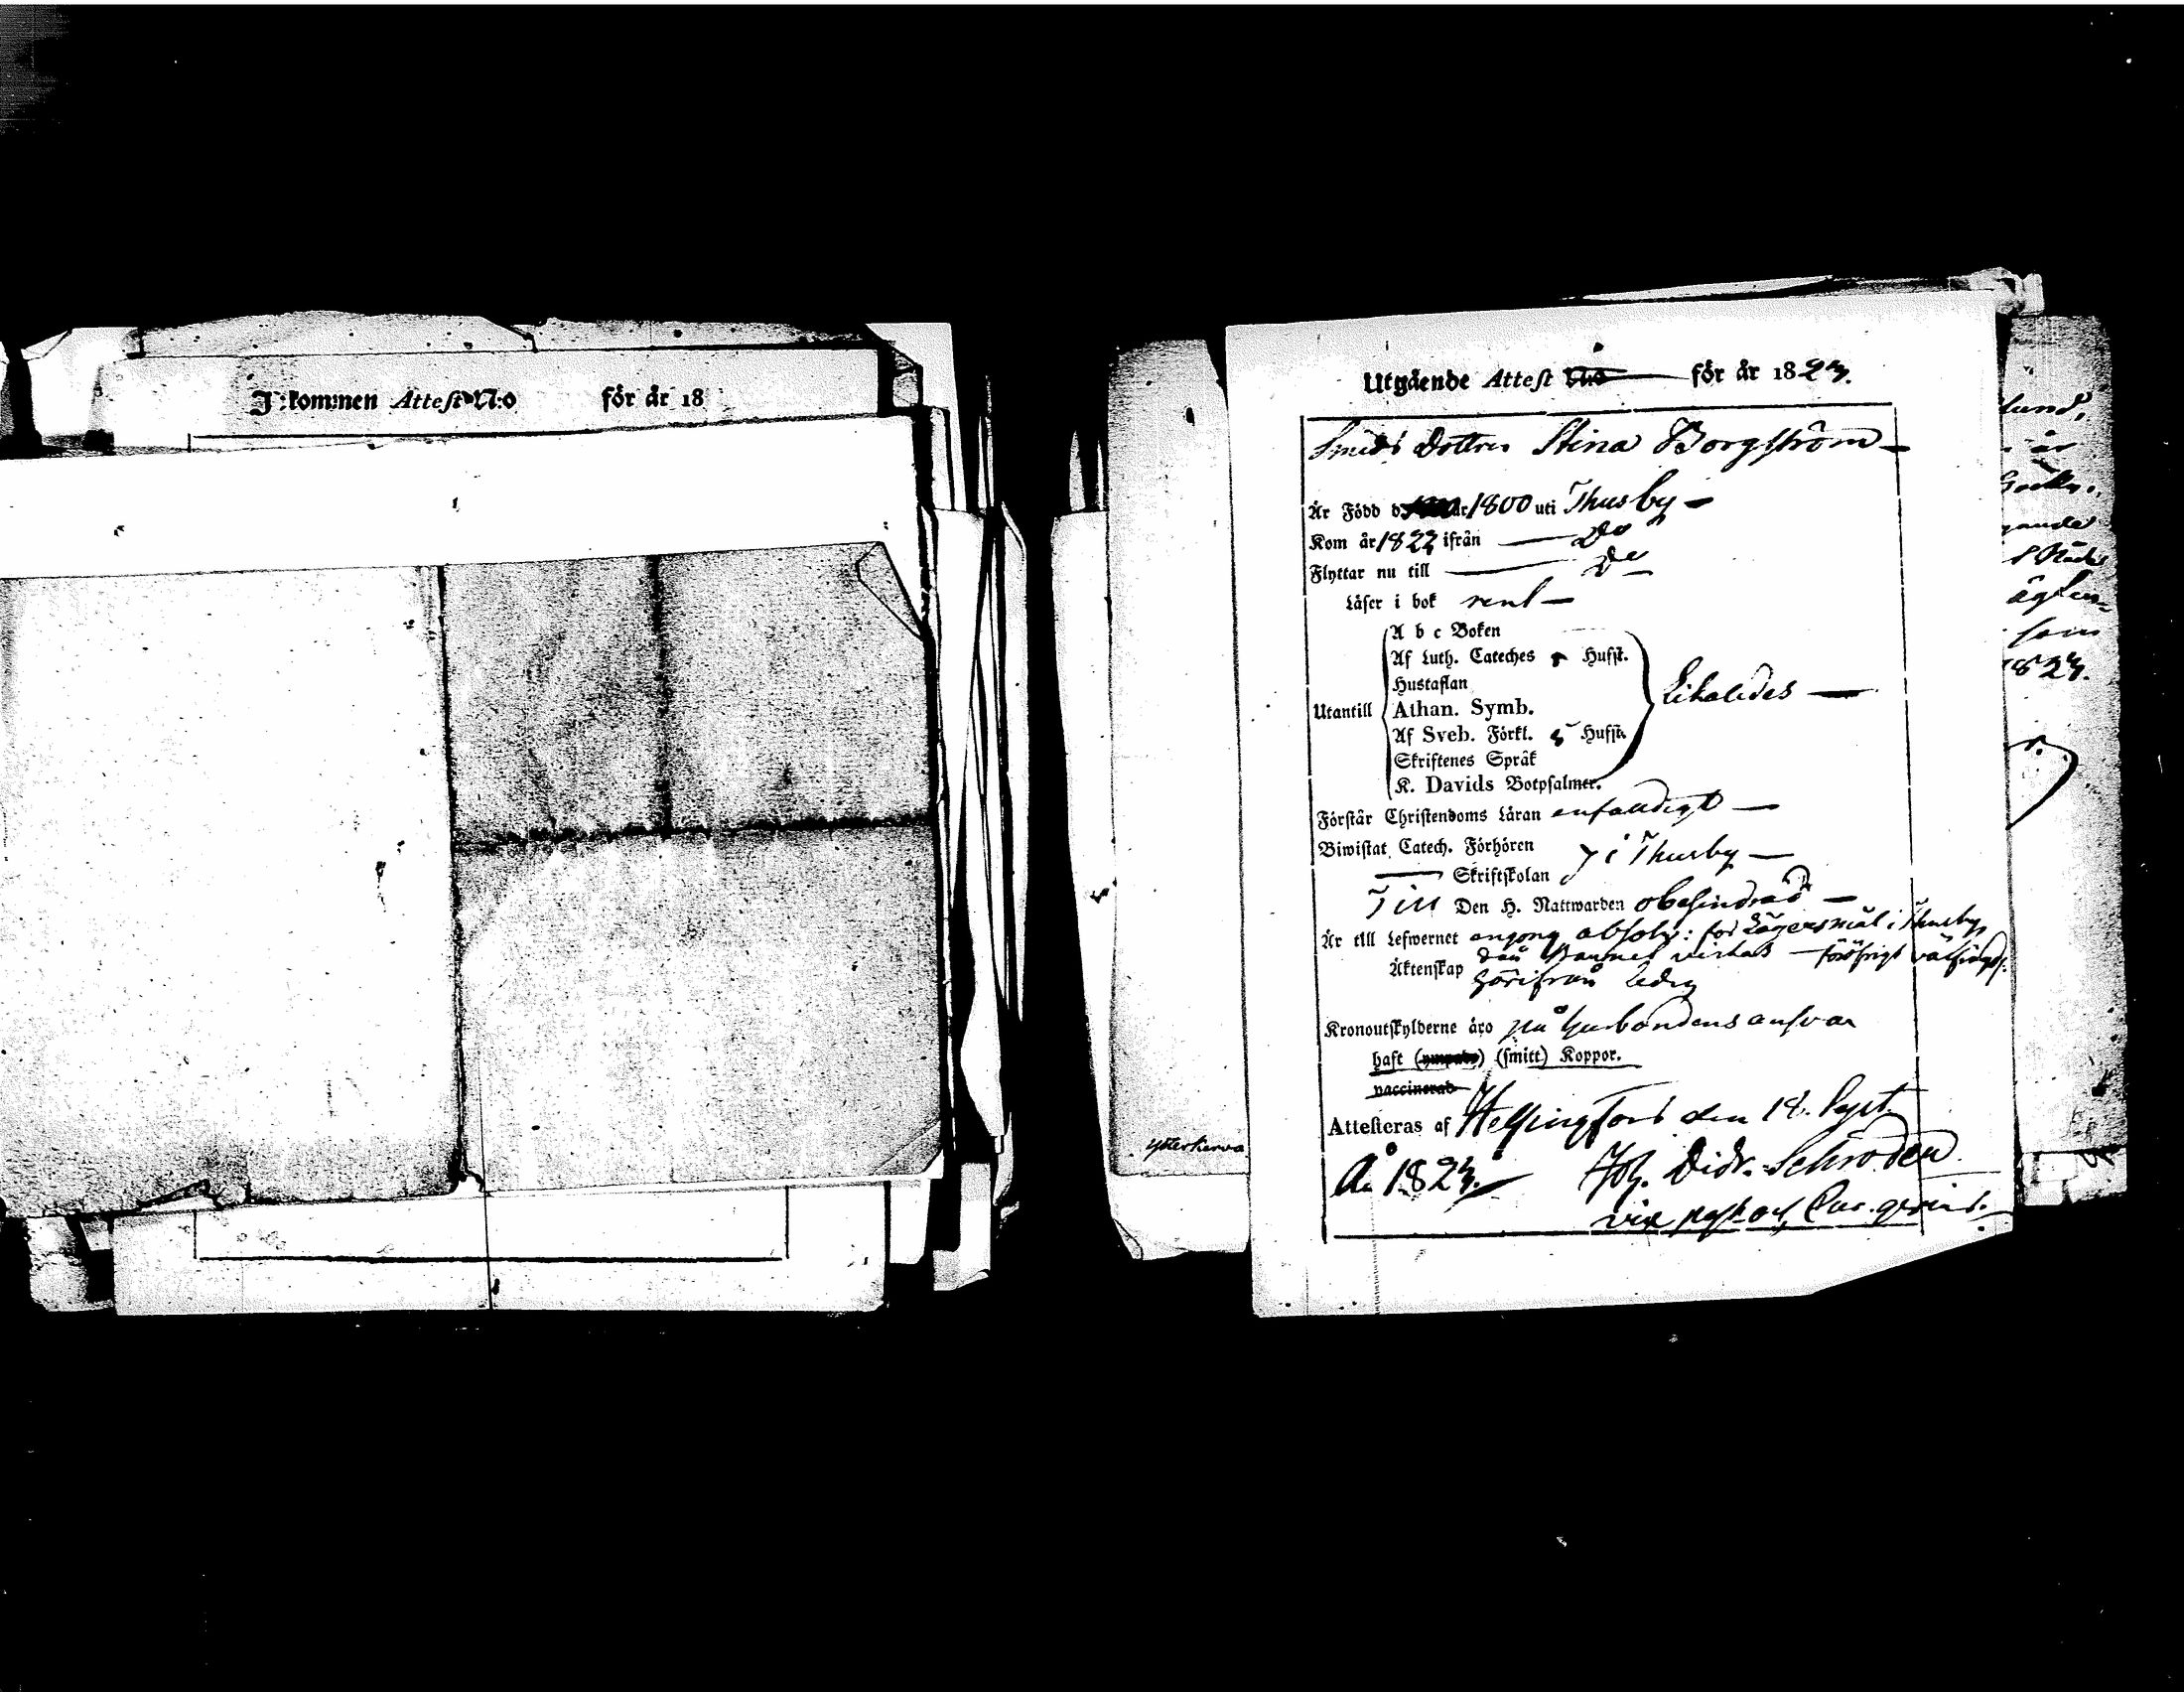 Inkommen Attest N:o för år 18
Utgående Attest N:o för år 1823.
Smeds Dottren Stina Borgström
Är Född d år 1800 uti Thusby
Kom år 1822 ifrån Do
Flyttar nu till Do
Läser i bok rent
A b c Boken
Af Luth. Cateches Hufst.
Hustaflan
Utantill Athan. Symb. Likaledes
Af Sveb. Förkl. 5 Hufst.
Skriftenes Språk
K. Davids Botpsalmer.
Förstår Christendoms Läran enfaldigt
Biwistat Catech. Förhören i Thusby
Skriftskolan
Till Den H. Nattwarden obehindrad
Är till Lefwernet engång absolv: för Lägersmål i Thusby,
der Barnet vistas föröfrigt välfrägd.
Äktenskap härifrån ledig
Kronoutskylderne äro på husbondens ansvar
haft (smitt) Koppor.
vaccinerad
Attesteras af Helsingfors den 18. Sept.
År 1823. Joh. Didr. Schroden
Ytterkerva
lund,
som
1823.